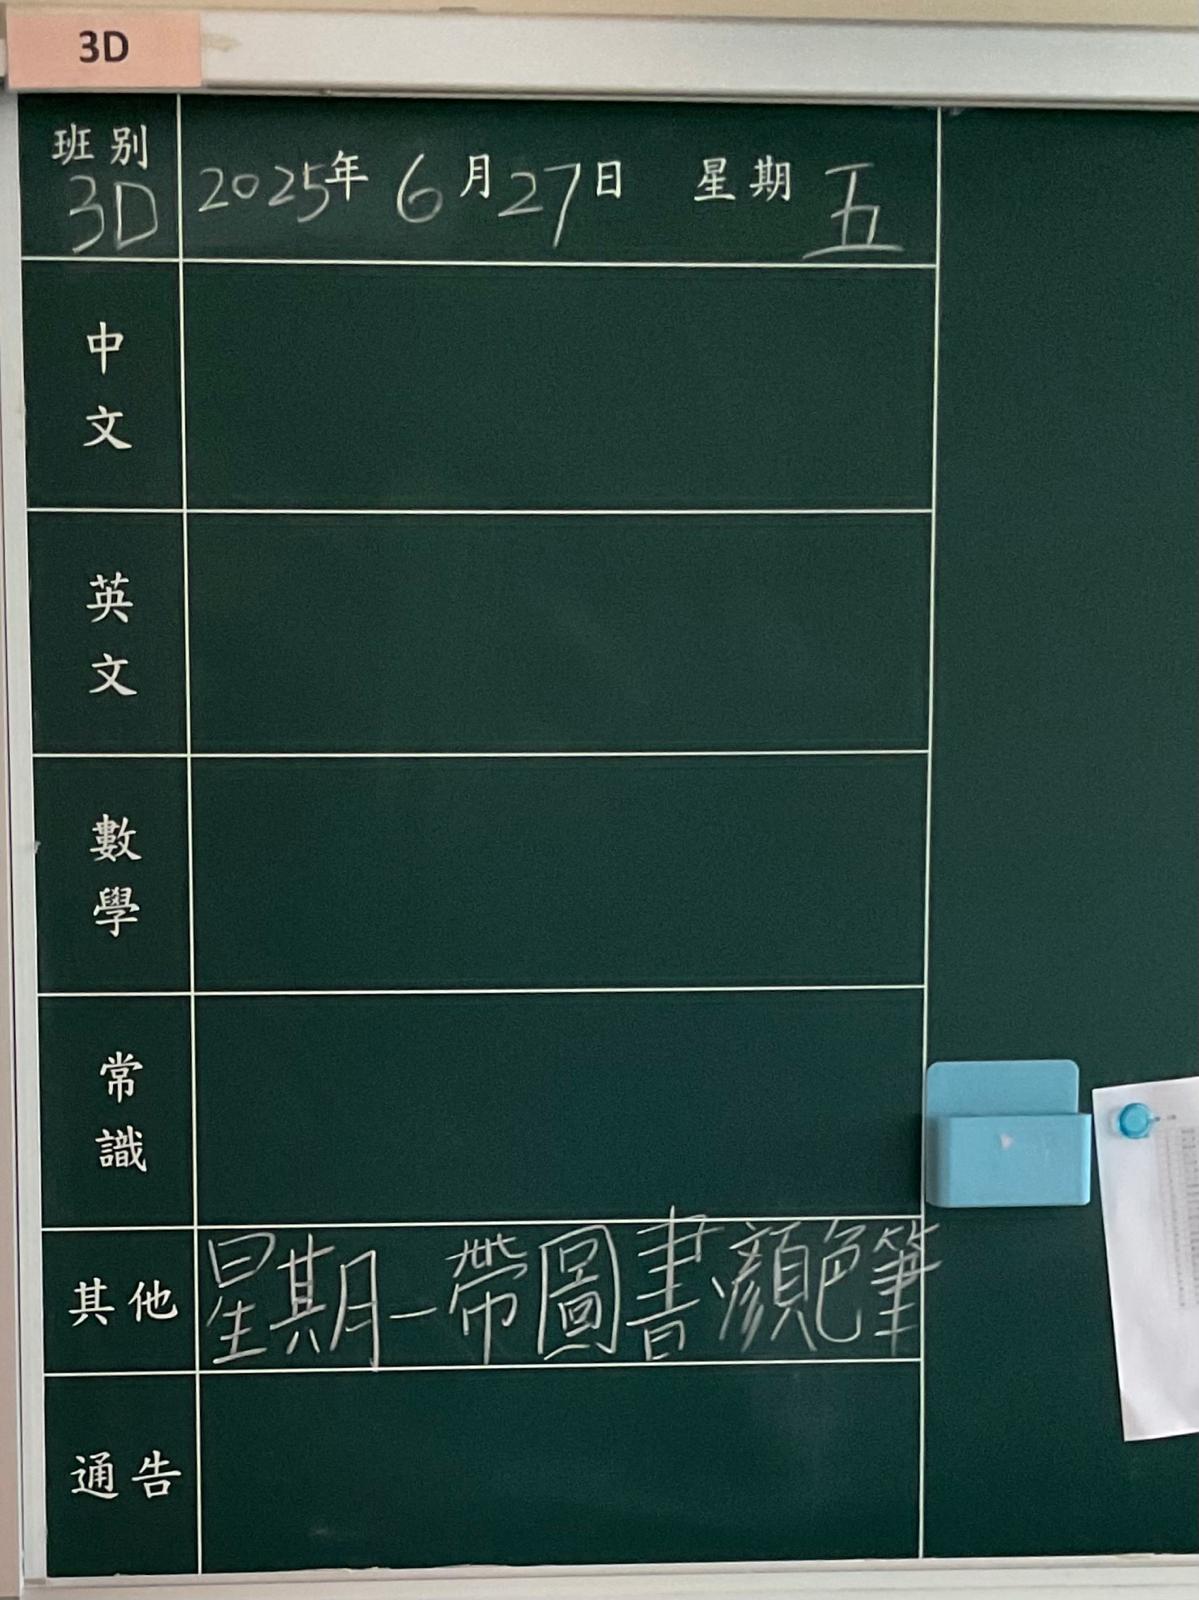 3D
班別 3D
2025年6月27日 星期五
中文
英文
數學
常識
其他
星期一帶圖書顏色筆
通告